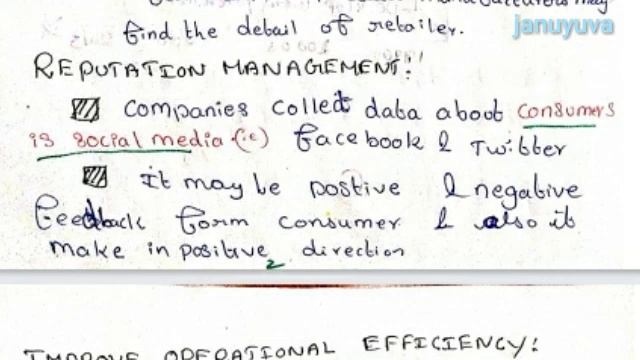 may
januyuva
find the detail of retailer.
REPUTATION MANAGEMENT:'
Companies collect data about consumers
is social media (ie) facebook & Twitter
It may be postive & negative
feedback form consumer & also it
make in positive direction
2
IMPROVE OPERATIONAL EFFICIENCY: